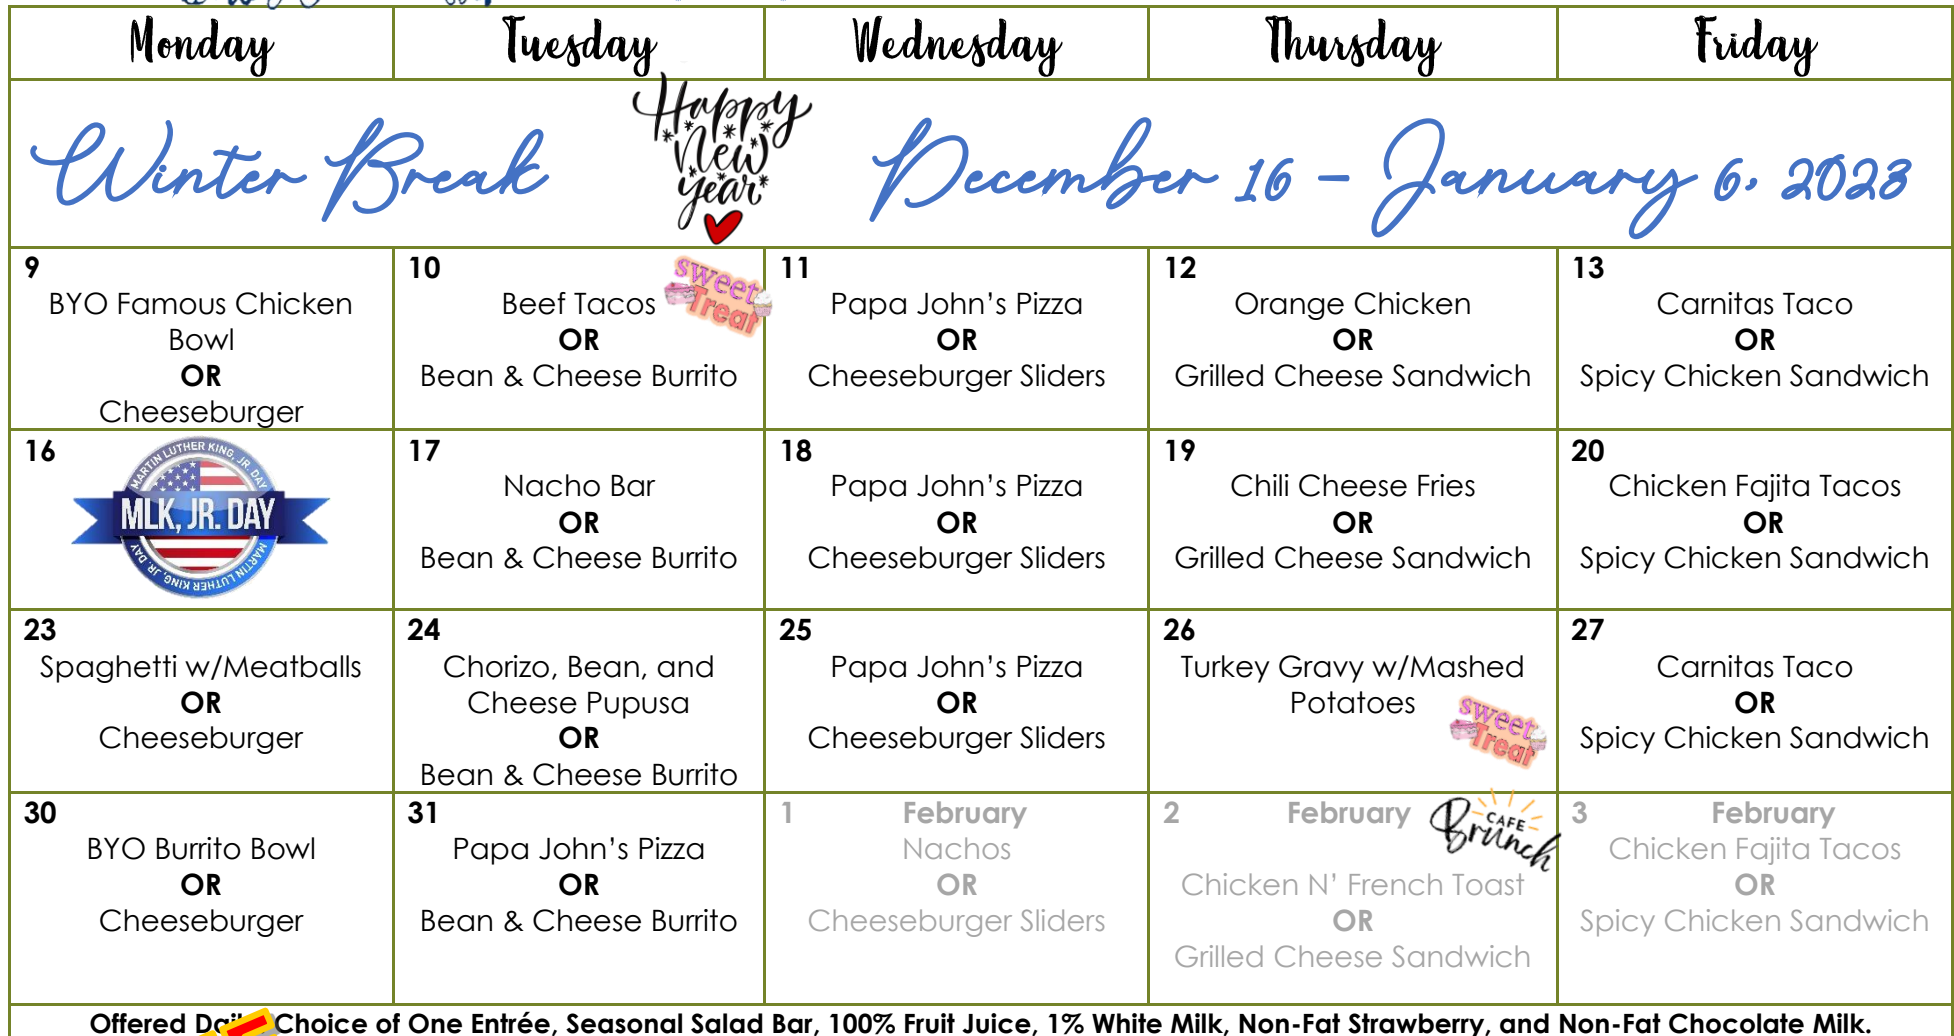 Monday Tuesday Wednesday Thursday Friday
Winter Break
Happy
New
year
December 16 – January 6, 2023
9
BYO Famous Chicken
Bowl
OR
Cheeseburger
10
sweet
Treat
Beef Tacos
OR
Bean & Cheese Burrito
11
Papa John's Pizza
OR
Cheeseburger Sliders
12
Orange Chicken
OR
Grilled Cheese Sandwich
13
Carnitas Taco
OR
Spicy Chicken Sandwich
16
MARTIN LUTHER KING, JR. DAY
MLK, JR. DAY
MARTIN LUTHER KING, JR. DAY
17
Nacho Bar
OR
Bean & Cheese Burrito
18
Papa John's Pizza
OR
Cheeseburger Sliders
19
Chili Cheese Fries
OR
Grilled Cheese Sandwich
20
Chicken Fajita Tacos
OR
Spicy Chicken Sandwich
23
Spaghetti w/Meatballs
OR
Cheeseburger
24
Chorizo, Bean, and
Cheese Pupusa
OR
Bean & Cheese Burrito
25
Papa John's Pizza
OR
Cheeseburger Sliders
26
Turkey Gravy w/Mashed
Potatoes
sweet
Treat
27
Carnitas Taco
OR
Spicy Chicken Sandwich
30
BYO Burrito Bowl
OR
Cheeseburger
31
Papa John's Pizza
OR
Bean & Cheese Burrito
1 February
Nachos
OR
Cheeseburger Sliders
2 February
CAFE
Brunch
Chicken N' French Toast
OR
Grilled Cheese Sandwich
3 February
Chicken Fajita Tacos
OR
Spicy Chicken Sandwich
Offered Choice of One Entrée, Seasonal Salad Bar, 100% Fruit Juice, 1% White Milk, Non-Fat Strawberry, and Non-Fat Chocolate Milk.